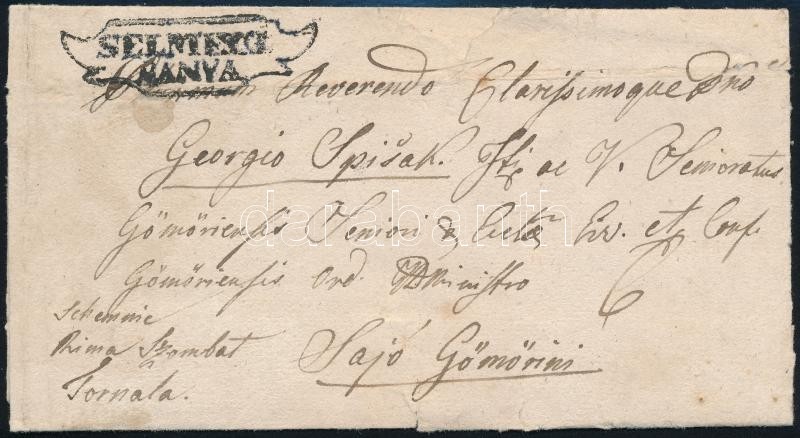 SELMECZ
BANYA
Reverendo Clarissimoque Dno
Georgio Spišak. ac V. Senioratus
Gömöriensis Seniori & Ev. et Conf.
Gömöriensis Ord. Ministro
Schemnic
Rima Szombat
Tornala.
Sajó Gömörini
darabanth